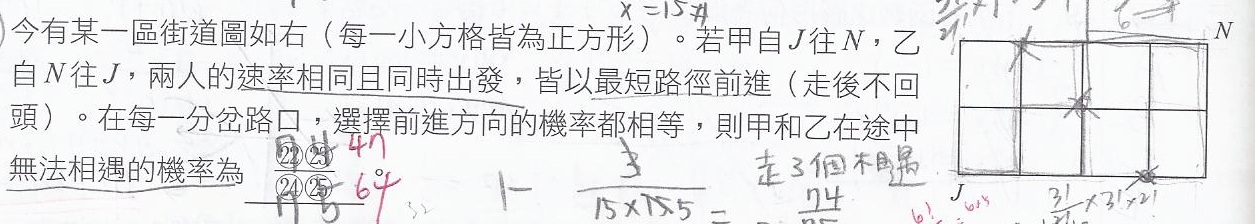 x=15
今有某一區街道圖如右（每一小方格皆為正方形）。若甲自J往N，乙
自N往J，兩人的速率相同且同時出發，皆以最短路徑前進（走後不回
頭）。在每一分岔路口，選擇前進方向的機率都相等，則甲和乙在途中
無法相遇的機率為 ㉒㉓ 47
㉔㉕ 64 。
1- 3
走3個相遇
74
N
J